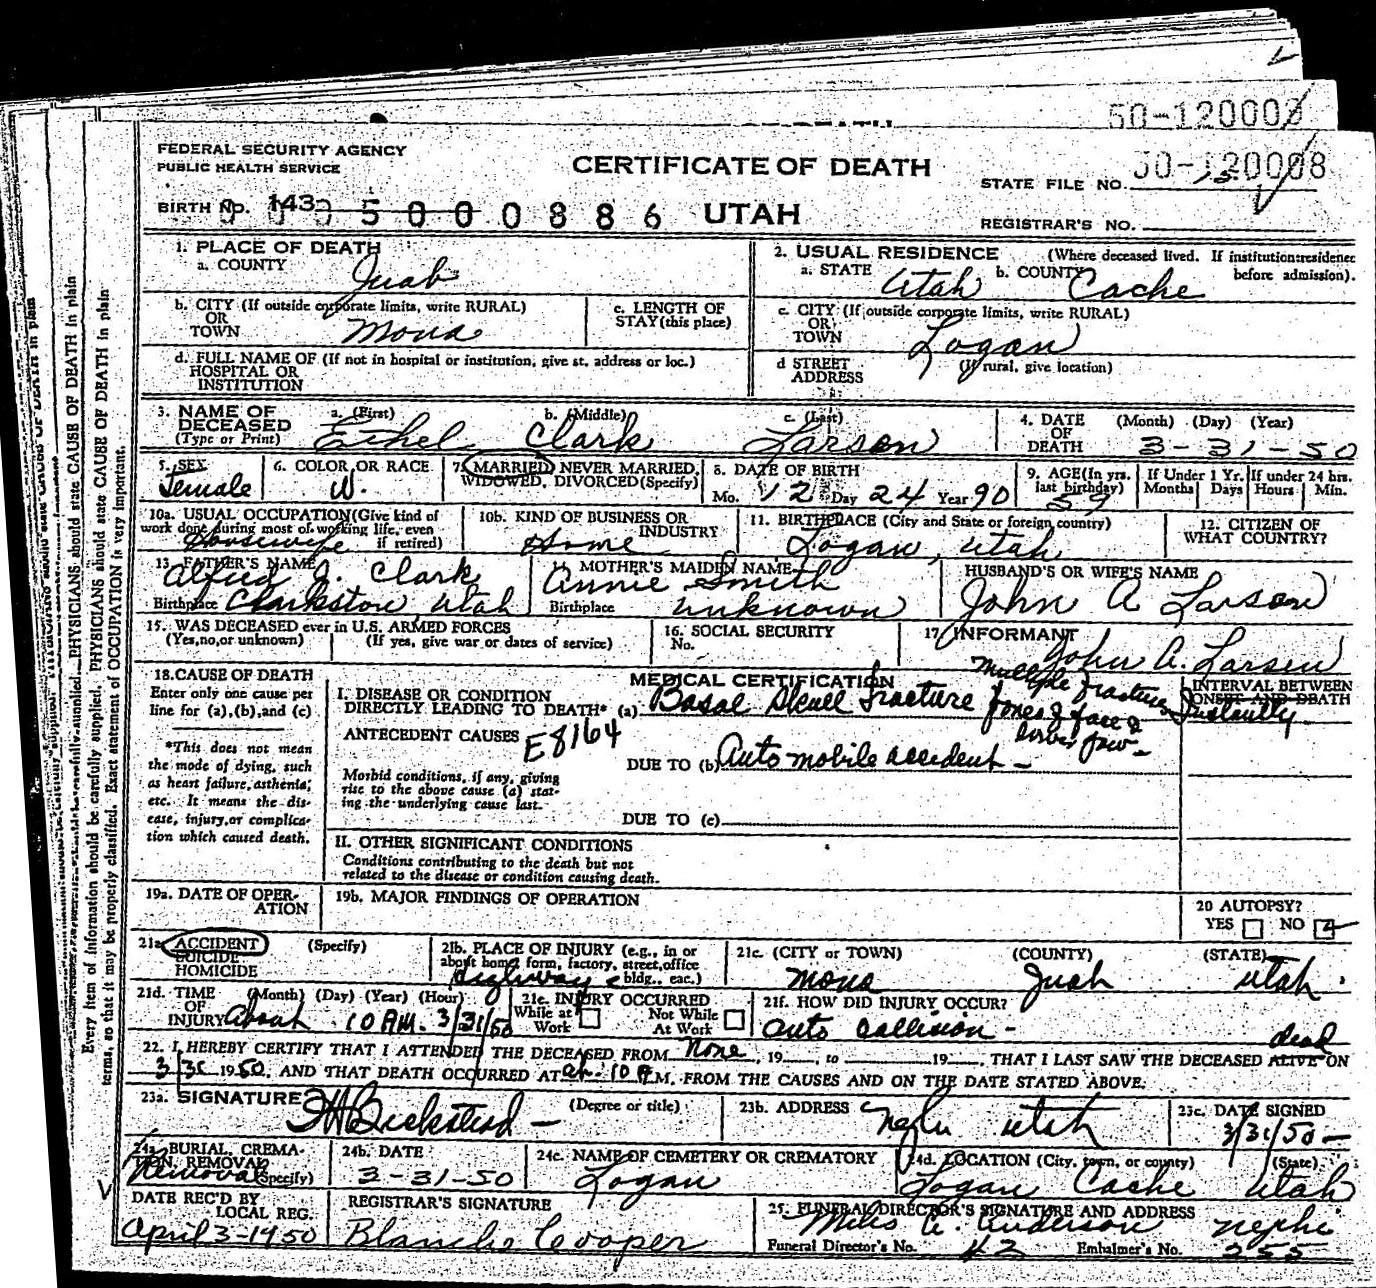 50-120007
FEDERAL SECURITY AGENCY
PUBLIC HEALTH SERVICE
CERTIFICATE OF DEATH
STATE FILE NO.
BIRTH No. 143
5 0 0 0 8 8 6
UTAH
REGISTRAR'S NO.
1. PLACE OF DEATH
a. COUNTY Juab
2. USUAL RESIDENCE (Where deceased lived. If institution: residence before admission).
a. STATE Utah b. COUNTY Cache
b. CITY (If outside corporate limits, write RURAL)
OR
TOWN Mona
c. LENGTH OF
STAY (this place)
c. CITY (If outside corporate limits, write RURAL)
OR
TOWN Logan
d. FULL NAME OF (If not in hospital or institution, give st. address or loc.)
HOSPITAL OR
INSTITUTION
d STREET (If rural, give location)
ADDRESS
3. NAME OF a. (First) b. (Middle) c. (Last)
DECEASED
(Type or Print) Ethel Clark Larson
4. DATE (Month) (Day) (Year)
OF
DEATH 3-31-50
5. SEX
Female
6. COLOR OR RACE
W.
7. MARRIED, NEVER MARRIED,
WIDOWED, DIVORCED (Specify)
8. DATE OF BIRTH
Mo. 12 Day 24 Year 90
9. AGE (In yrs.
last birthday) 59
If Under 1 Yr.
Months Days
If under 24 hrs.
Hours Min.
10a. USUAL OCCUPATION (Give kind of
work done during most of working life, even
if retired)
Housewife
10b. KIND OF BUSINESS OR
INDUSTRY
Home
11. BIRTHPLACE (City and State or foreign country)
Logan, Utah
12. CITIZEN OF
WHAT COUNTRY?
13. FATHER'S NAME
Alfred J. Clark
Birthplace Clarkston, Utah
MOTHER'S MAIDEN NAME
Annie Smith
Birthplace unknown
HUSBAND'S OR WIFE'S NAME
John A Larson
15. WAS DECEASED ever in U.S. ARMED FORCES
(Yes, no, or unknown) (If yes, give war or dates of service)
16. SOCIAL SECURITY
No.
17. INFORMANT
John A. Larsen
18. CAUSE OF DEATH
Enter only one cause per
line for (a), (b), and (c)
*This does not mean
the mode of dying, such
as heart failure, asthenia,
etc. It means the dis-
ease, injury, or complica-
tion which caused death.
MEDICAL CERTIFICATION
I. DISEASE OR CONDITION
DIRECTLY LEADING TO DEATH* (a) Basal Skull Fracture
Multiple fractures
face &
lower jaw-
INTERVAL BETWEEN
ONSET AND DEATH
Instantly
ANTECEDENT CAUSES
E8164
Morbid conditions, if any, giving
rise to the above cause (a) stat-
ing the underlying cause last.
DUE TO (b) Automobile accident -
DUE TO (c)
II. OTHER SIGNIFICANT CONDITIONS
Conditions contributing to the death but not
related to the disease or condition causing death.
19a. DATE OF OPER-
ATION
19b. MAJOR FINDINGS OF OPERATION
20 AUTOPSY?
YES NO
21a. ACCIDENT (Specify)
SUICIDE
HOMICIDE
21b. PLACE OF INJURY (e.g., in or
about home, form, factory, street, office
bldg., eac.)
Highway
21c. (CITY or TOWN) (COUNTY) (STATE)
Mona Juab Utah
21d. TIME (Month) (Day) (Year) (Hour)
OF
INJURY About 10 AM. 3/31/50
21e. INJURY OCCURRED
While at Work Not While At Work
21f. HOW DID INJURY OCCUR?
Auto Collision -
22. I HEREBY CERTIFY THAT I ATTENDED THE DECEASED FROM None, 19__, to 19__, THAT I LAST SAW THE DECEASED ALIVE ON
dead
3/31 1950, AND THAT DEATH OCCURRED AT ab. 10 A M. FROM THE CAUSES AND ON THE DATE STATED ABOVE.
23a. SIGNATURE (Degree or title)
Beckstead -
23b. ADDRESS
Utah
23c. DATE SIGNED
3/31/50-
24a. BURIAL, CREMA-
TION, REMOVAL (Specify)
Removal
24b. DATE
3-31-50
24c. NAME OF CEMETERY OR CREMATORY
Logan
24d. LOCATION (City, town, or county) (State)
Logan Cache Utah
DATE REC'D BY
LOCAL REG.
April 3-1950
REGISTRAR'S SIGNATURE
Blanche Cooper
25. FUNERAL DIRECTOR'S SIGNATURE AND ADDRESS
Miles A. Anderson Nephi
Funeral Director's No. 42 Embalmer's No. 255
Every item of information should be carefully supplied. PHYSICIANS should state CAUSE OF DEATH in plain
terms, so that it may be properly classified. Exact statement of OCCUPATION is very important.